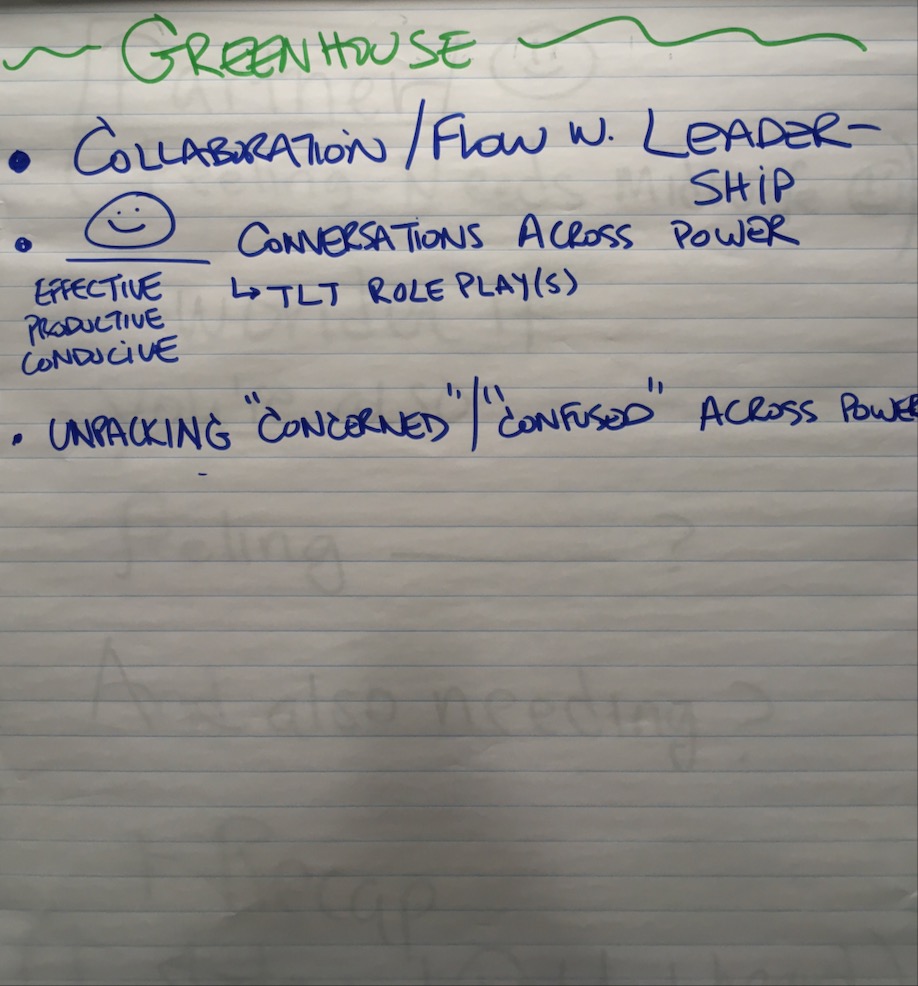 GREENHOUSE
• COLLABORATION / FLOW W. LEADER-
SHIP
• CONVERSATIONS ACROSS POWER
EFFECTIVE
PRODUCTIVE
CONDUCIVE
↳ TLT ROLE PLAY(S)
• UNPACKING "CONCERNED" / "CONFUSED" ACROSS POWER
feeling ?
And also needing ?
Recap